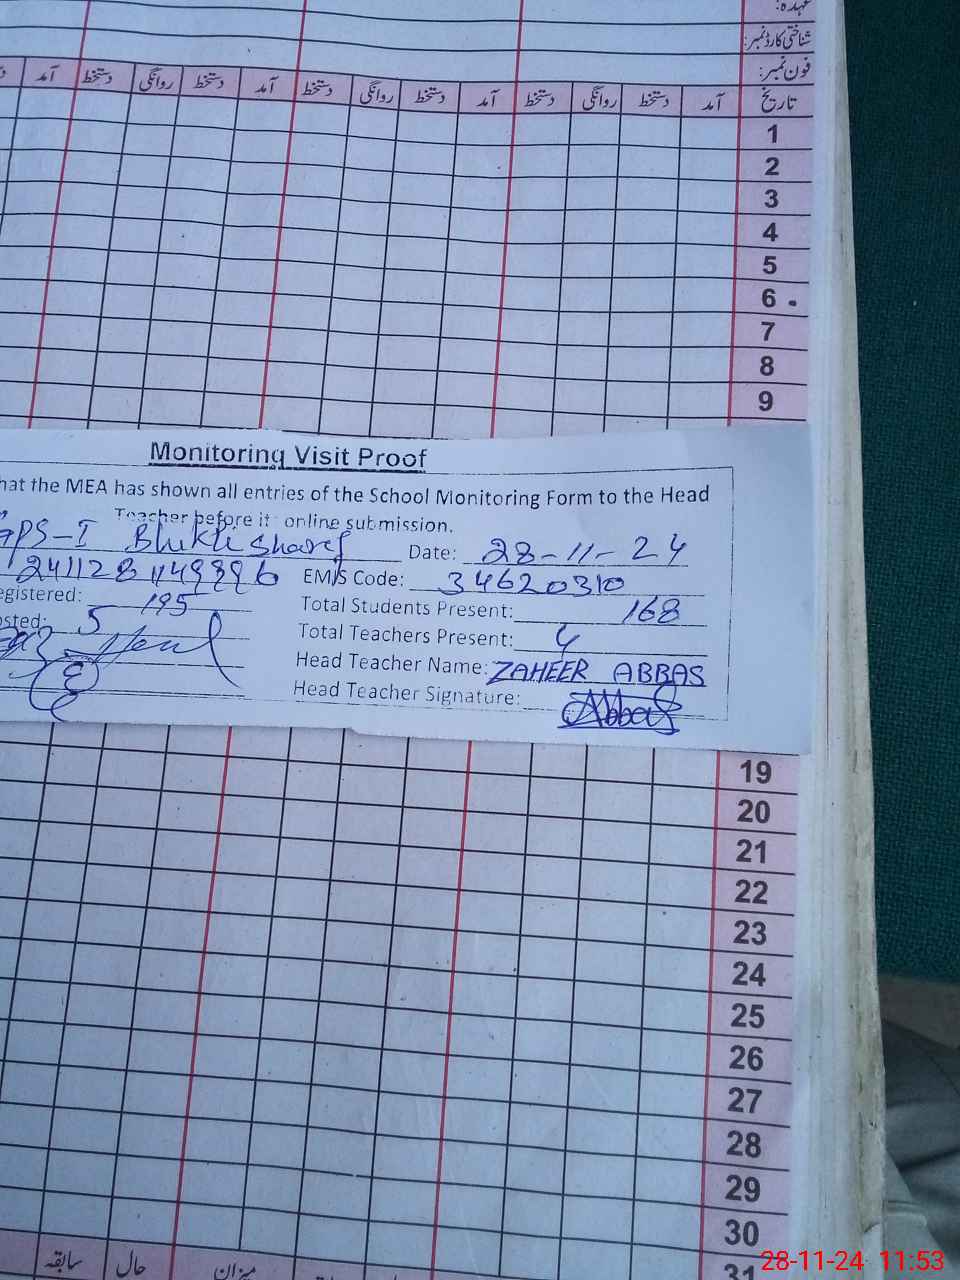 عہدہ:
شناختی کارڈ نمبر:
فون نمبر:
تاریخ آمد دستخط روانگی دستخط آمد دستخط روانگی دستخط آمد دستخط روانگی دستخط آمد
1
2
3
4
5
6
7
8
9
Monitoring Visit Proof
that the MEA has shown all entries of the School Monitoring Form to the Head
Teacher before it online submission.
GPS-I Sharif Date: 28-11-24
EMIS Code: 34620310
egistered: 195 Total Students Present: 168
osted: 5 Total Teachers Present: 4
Head Teacher Name: ZAHEER ABBAS
Head Teacher Signature: Abbas
19
20
21
22
23
24
25
26
27
28
29
30
31
میزان حال سابقہ
28-11-24 11:53